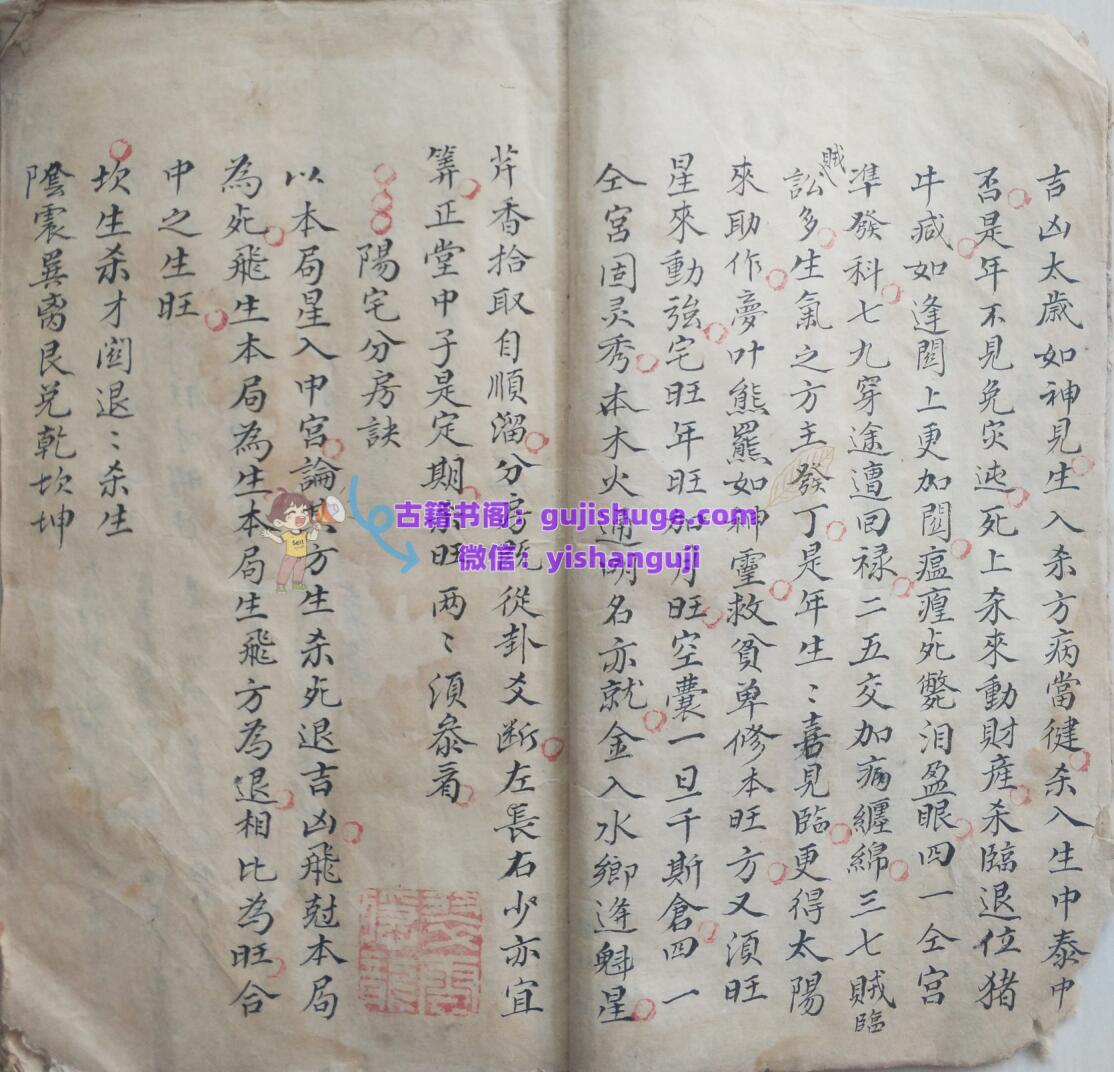 吉凶太歲如神見生入杀方病當徤杀入生中泰中
否是年不見免灾迍死上杀來動財産杀臨退位猪
牛减如逢関上更加関瘟瘽死斃泪盈眼四一仝宮
準發科七九穿途遭回禄二五交加痛纒綿三七賊臨
賊訟多生氣之方主發丁是年生〻嘉見臨更得太陽
來助作夢叶熊羆如神靈救貧单修本旺方又湏旺
星來動强宅旺年旺加月旺空囊一旦千斯倉四一
仝宮固灵秀本木火通明名亦就金入水鄉逢魁星
芹香拾取自順溜分房訣從卦爻断左長右少亦宜
筭正堂中子是定期衰旺两〻湏叅看
陽宅分房訣
以本局星入中宮論方生杀死退吉凶飛尅本局
為死飛生本局為生本局生飛方為退相比為旺合
中之生旺
坎生杀才関退〻杀生
陰震巽离艮兑乾坎坤
古籍书阁：gujishuge.com
微信：yishanguji